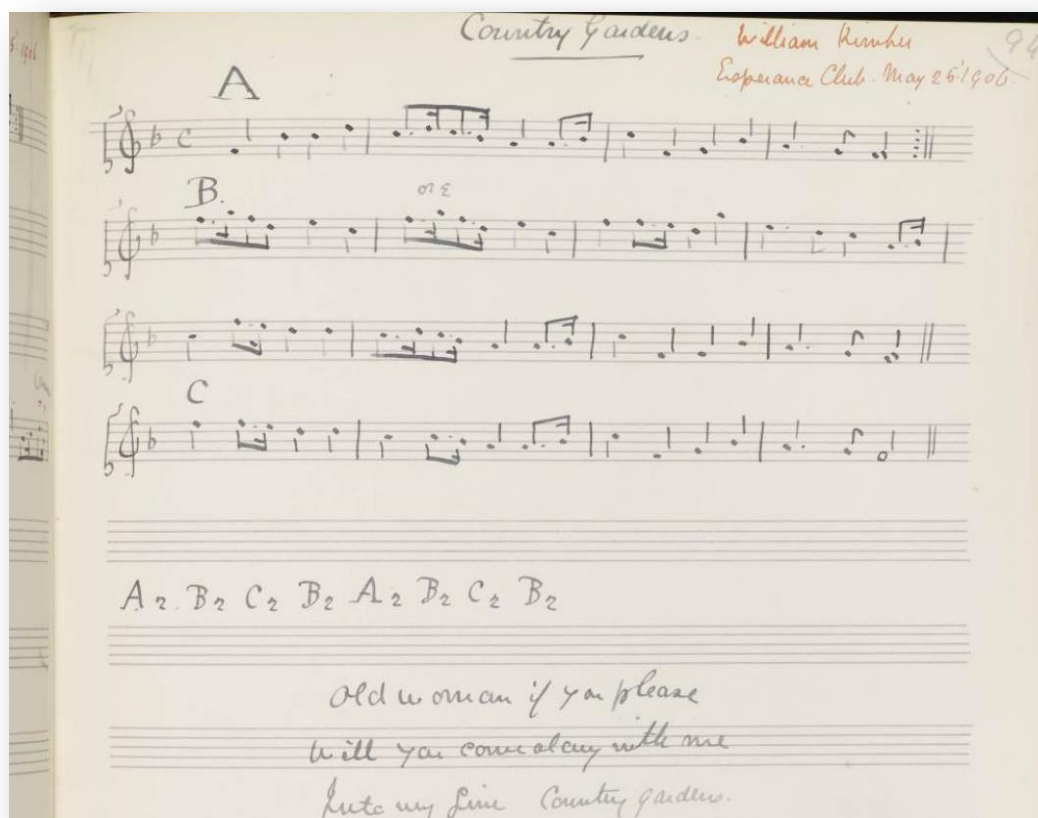 Country Gardens. William Kimber 94
Esperance Club. May 25 1906.
A
B.
or
C
A2. B2 C2 B2 A2 B2 C2 B2
Old woman if you please
Will you come along with me
Into my fine Country gardens.